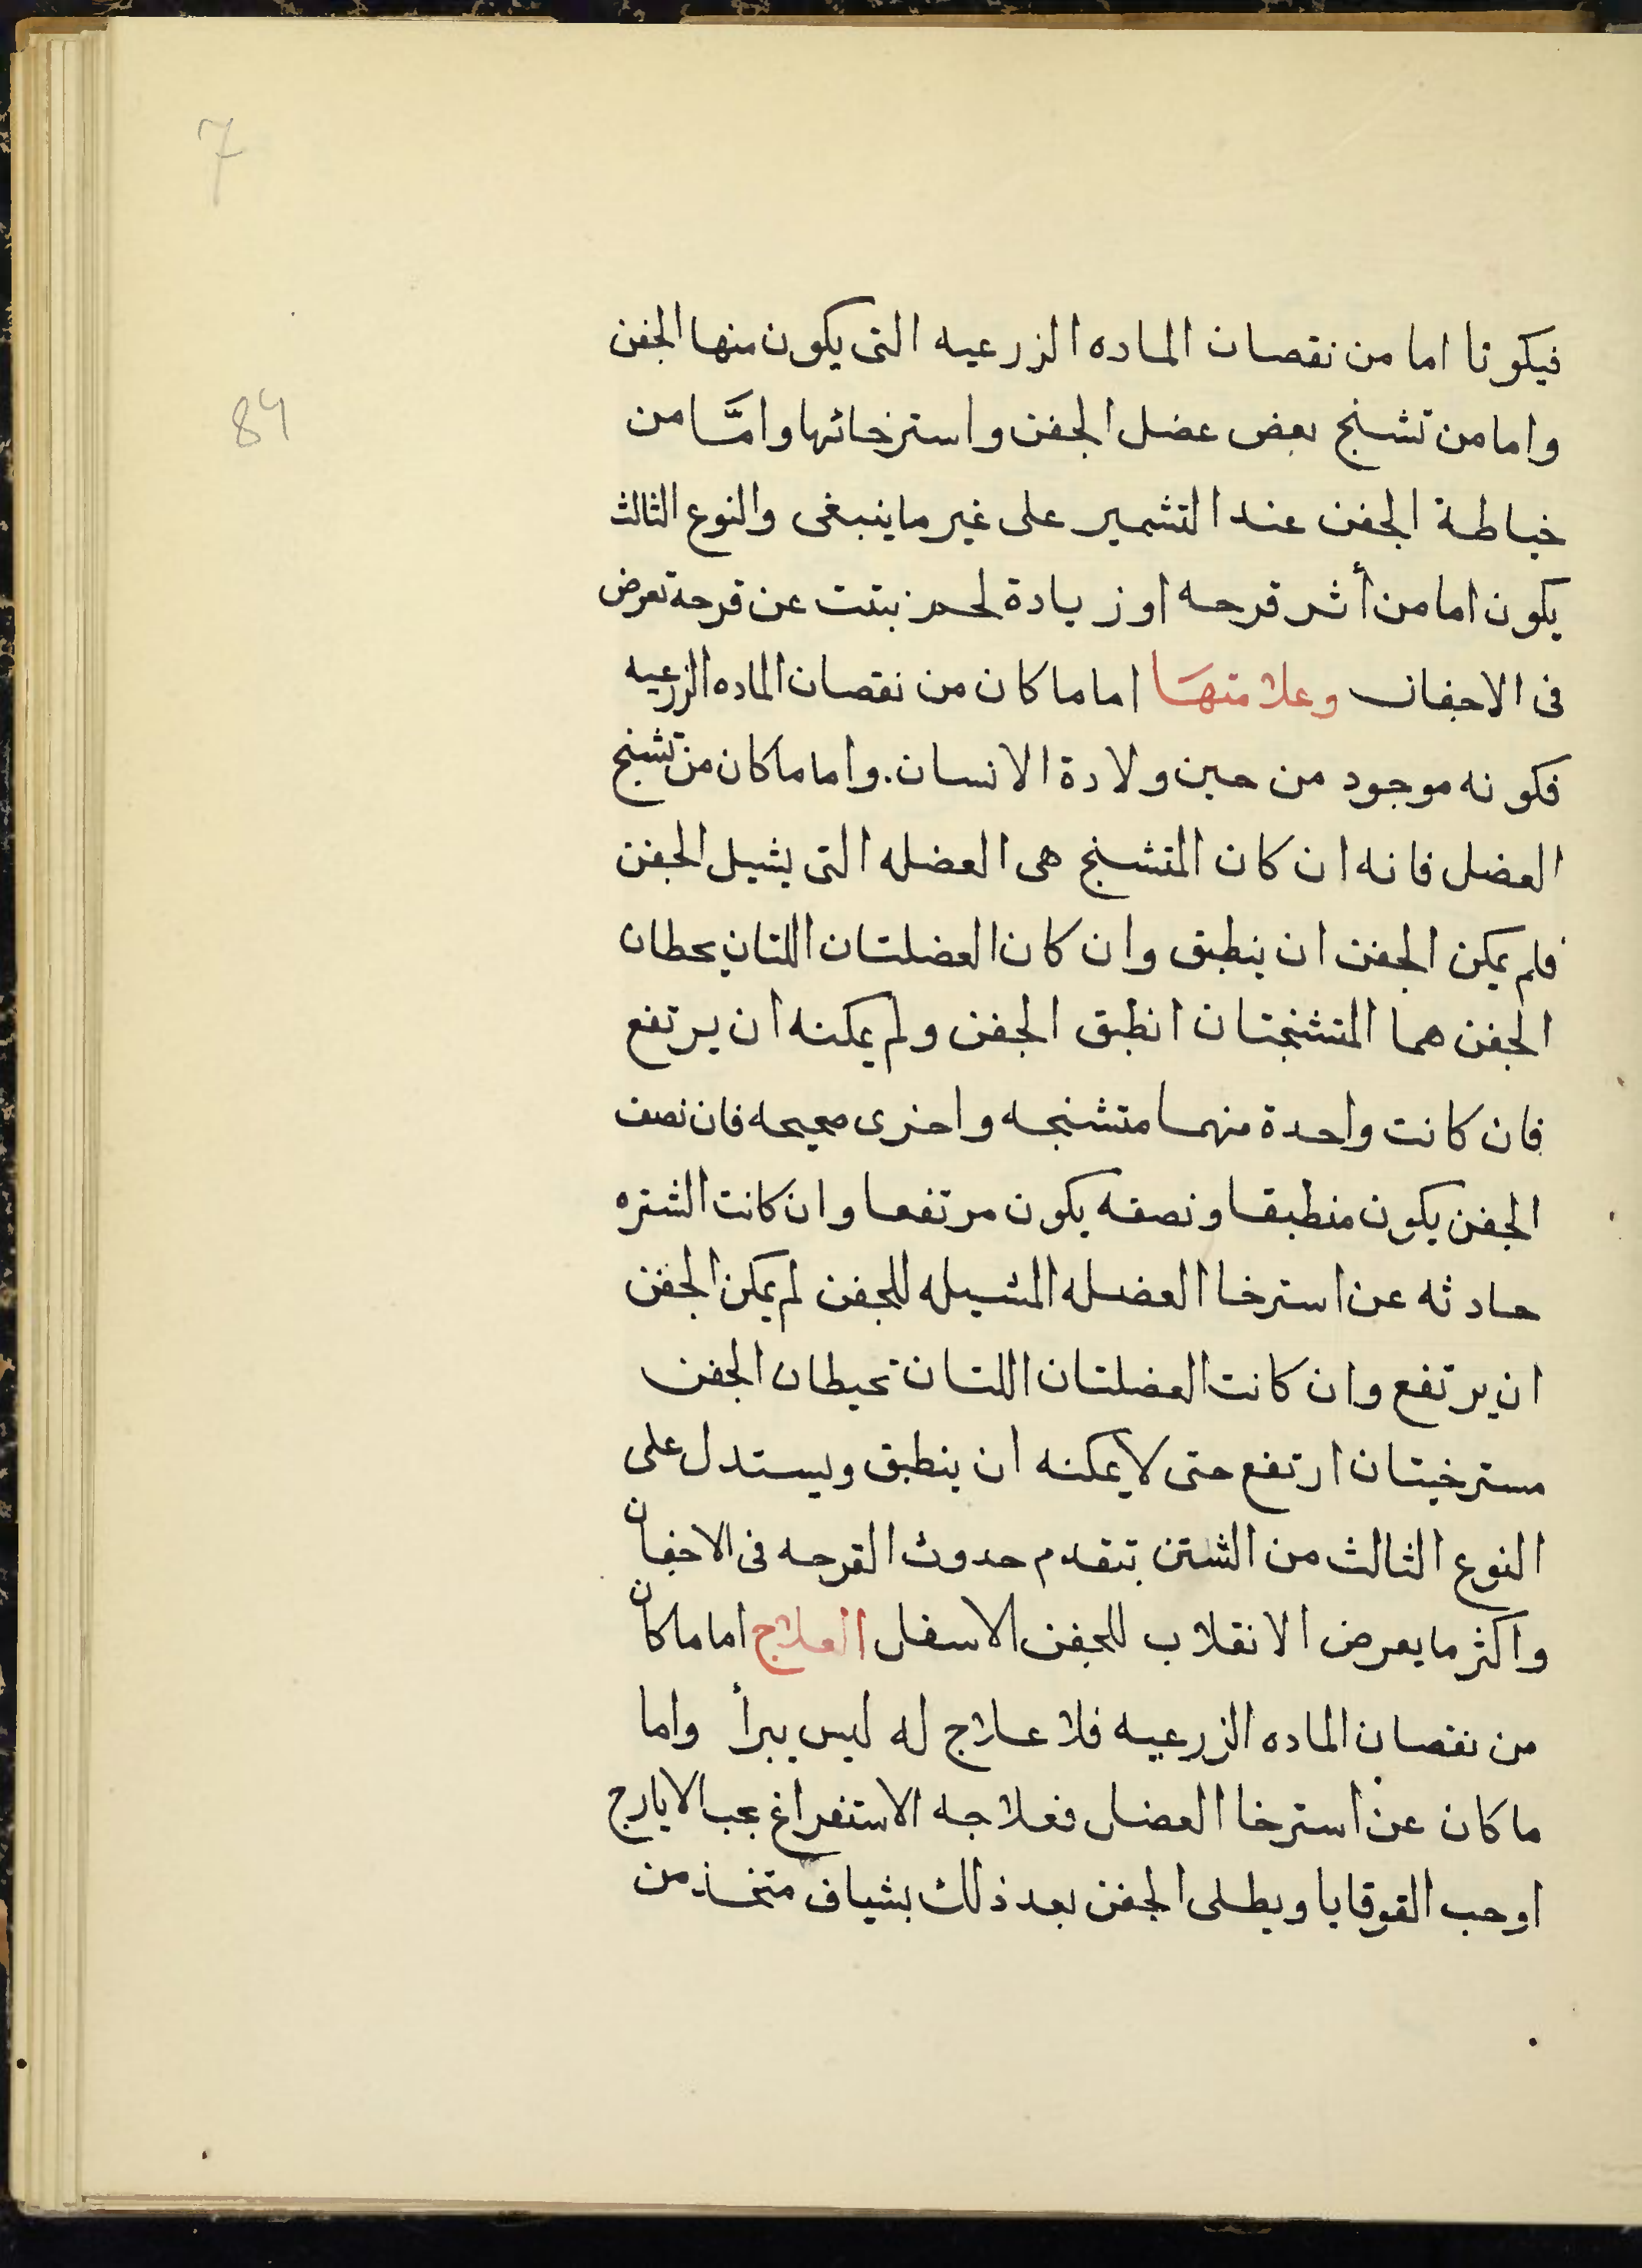 7
84
فيكونا اما من نقصان الماده الزرعيه التى يكون منها الجفن
واما من تشنج بعض عضل الجفن واسترخائها وامَّا من
خياطة الجفن عند التشمير على غير ما ينبغى والنوع الثالث
يكون اما من أثر قرحه او زيادة لحم نبتت عن قرحة تعرض
فى الاجفان وعلامتهَا اما ما كان من نقصان الماده الزرعيه
فكونه موجود من حين ولادة الانسان. واما ما كان من تشنج
العضل فانه ان كان المتشنج هى العضله التى يشيل الجفن
فلم يمكن الجفن ان ينطبق وان كان العضلتان اللتان يحطان
الجفن هما المتشنجتان انطبق الجفن ولم يمكنه ان يرتفع
فان كانت واحدة منهما متشنجه واخرى صحيحه فان نصف
الجفن يكون منطبقا ونصفه يكون مرتفعا وان كانت الشتره
حادثه عن استرخا العضله المشيله للجفن لم يمكن الجفن
ان يرتفع وان كانت العضلتان اللتان تحيطان الجفن
مسترخيتان ارتفع حتى لا يمكنه ان ينطبق ويستدل على
النوع الثالث من الشتن بتقدم حدوث القرحه فى الاجفان
واكثر ما يعرض الانقلاب للجفن الاسفل العلاج اما ما كان
من نقصان الماده الزرعيه فلا علاج له ليس يبرأ واما
ما كان عن استرخا العضل فعلاجه الاستفراغ بحب الايارج
او حب القوقايا ويطلى الجفن بعد ذلك بشياف متخذ من